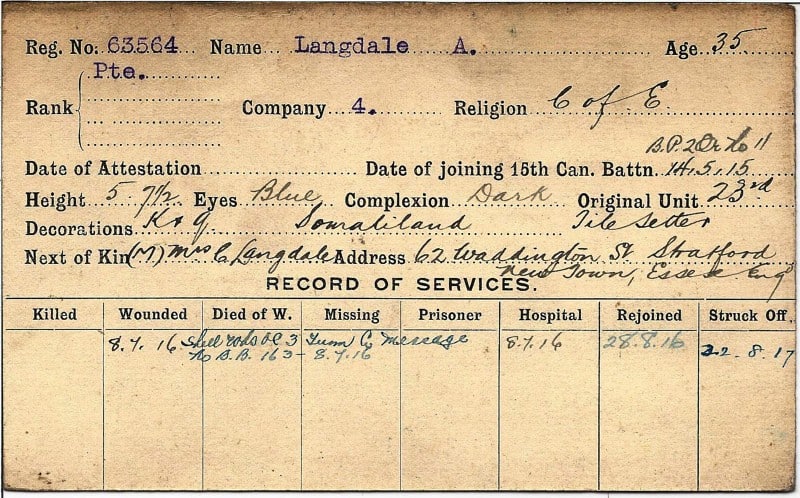 Reg. No. 63564 Name Langdale A. Age 35
Pte.
Rank Company 4. Religion C of E
B.P. 2 Or No 11
Date of Attestation Date of joining 15th Can. Battn. 14.5.15
Height 5 7½ Eyes Blue Complexion Dark Original Unit 23rd
Decorations K & Q Somaliland Tile Setter
Next of Kin (M) Mrs C Langdale Address 62 Waddington St. Stratford
New Town, Essex Eng
RECORD OF SERVICES.
Killed Wounded Died of W. Missing Prisoner Hospital Rejoined Struck Off.
8.7.16 Shell wds 3 Tunn Co Message 8.7.16 28.8.16 22.8.17
to B.B. 163 - 8.7.16